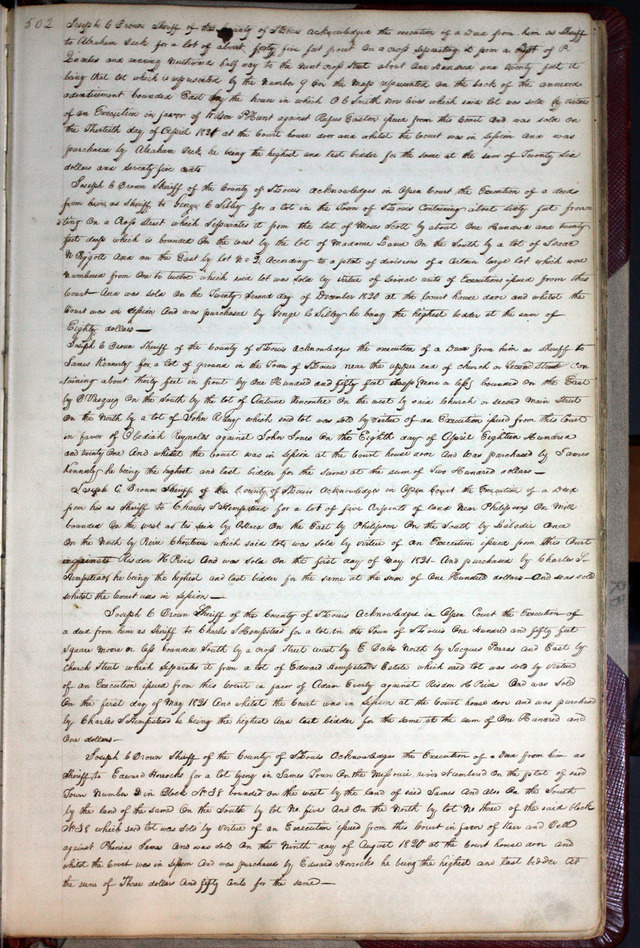 502
Joseph C Brown Sheriff of the County of St Louis Acknowledged the execution of a Deed from him as Sheriff
to Abraham Seek for a lot of about forty five feet front On a cross Separating it from a of P.
and running Northward half way to the Next cross Street about One Hundred and twenty feet it
being that lot which is represented by the Number 9 On the Map represented On the back of the annexed
advertisement bounded East by the house in which O C Smith Now lives which said lot was sold by virtue
of an Execution in favor of Wilson P Hunt against Rufus Easton issued from this Court And was sold On
the Thirtieth day of April 1821 at the Court house door and whilst the Court was in Session And was
purchased by Abraham Seek he being the highest and last bidder for the same at the sum of Twenty Six
dollars and Seventy five cents
Joseph C Brown Sheriff of the County of St Louis Acknowledges in Open Court the Execution of a deed
from him as Sheriff to George C Sibley for a lot in the Town of St Louis Containing about Sixty feet fron
-ting On a Cross Street which Separates it from the lot of Moses Scott by about One Hundred and twenty
feet deep which is bounded On the west by the lot of Madame On the South by a lot of Isaac
N and On the East by lot No 3. According to a plat of divisions of a Certain large lot which were
numbered from One to twelve which said lot was sold by virtue of Several writs of Executions issued from this
Court And was sold On the Twenty Second day of December 1820 at the Court house door and whilst the
Court was in Session And was purchased by George C Sibley he being the highest bidder at the sum of
Eighty dollars—
Joseph C Brown Sheriff of the County of St Louis Acknowledges the execution of a Deed from him as Sheriff to
James Kennerly for a lot of ground in the Town of St Louis near the upper end of church or Second Street Con
taining about thirty feet in front by One Hundred and fifty feet deep (more or less) bounded on the East
by On the South by the lot of Antoine On the west by said Church or second main Street
On the North by a lot of John R Guy which said lot was sold by virtue of an Execution issued from this Court
in favor of Obediah Reynolds against John Jones On the Eighth day of April Eighteen Hundred
and twenty One And whilst the Court was in Session at the Court house door And was purchased by James
Kennerly he being the highest and last bidder for the same at the sum of Two Hundred dollars—
Joseph C. Brown Sheriff of the County of St Louis Acknowledges in Open Court the Execution of a Deed
from his as Sheriff to Charles S Hempstead for a lot of five Arpents of land Near Philipsons On Mill
bounded On the west as tis said by On the East by Philipson On the South by Labadie Once
On the North by Chouteau which said lots was sold by virtue of an Execution issued from this Court
against Risdon H Price And was sold On the first day of May 1821– And purchased by Charles S.
Hempstead he being the highest and last bidder for the same at the sum of One Hundred dollars– And was sold
whilst the Court was in Session—
Joseph C Brown Sheriff of the County of St Louis Acknowledged in Open Court the Execution of
a deed from him as Sheriff to Charles S Hempstead for a lot in the Town of St Louis One Hundred and fifty feet
Square more or less bounded South by a cross Street west by E North by Jacques and East by
church Street which Separates it from a lot of Edward Hempstead's Estate which said lot was sold by virtue
of an Execution issued from this Court in favor of Adam against Risdon H Price And was Sold
On the first day of May 1821 And whilst the Court was in Session at the Court house door and was purchased
by Charles S Hempstead he being the highest And last bidder for the same at the sum of One Hundred and
One dollars—
Joseph C Brown Sheriff of the County of St Louis Acknowledges the Execution of a Deed from him as
Sheriff to Edward Horrocks for a lot lying in James Town On the Missouri river Numbered On the plat of said
Town Number 2 in Block No 38 bounded on the west by the land of said James And Also On the South
by the land of the same On the South by lot No. five And On the North by lot No three of the said block
No 38 which said lot was sold by virtue of an Execution issued from this Court in favor of and Bell
against Phineas James And was sold On the Ninth day of August 1820 at the Court house door and
whilst the Court was in Session And was purchased by Edward Horrocks he being the highest and last bidder At
the sum of Three dollars And fifty cents for the same—